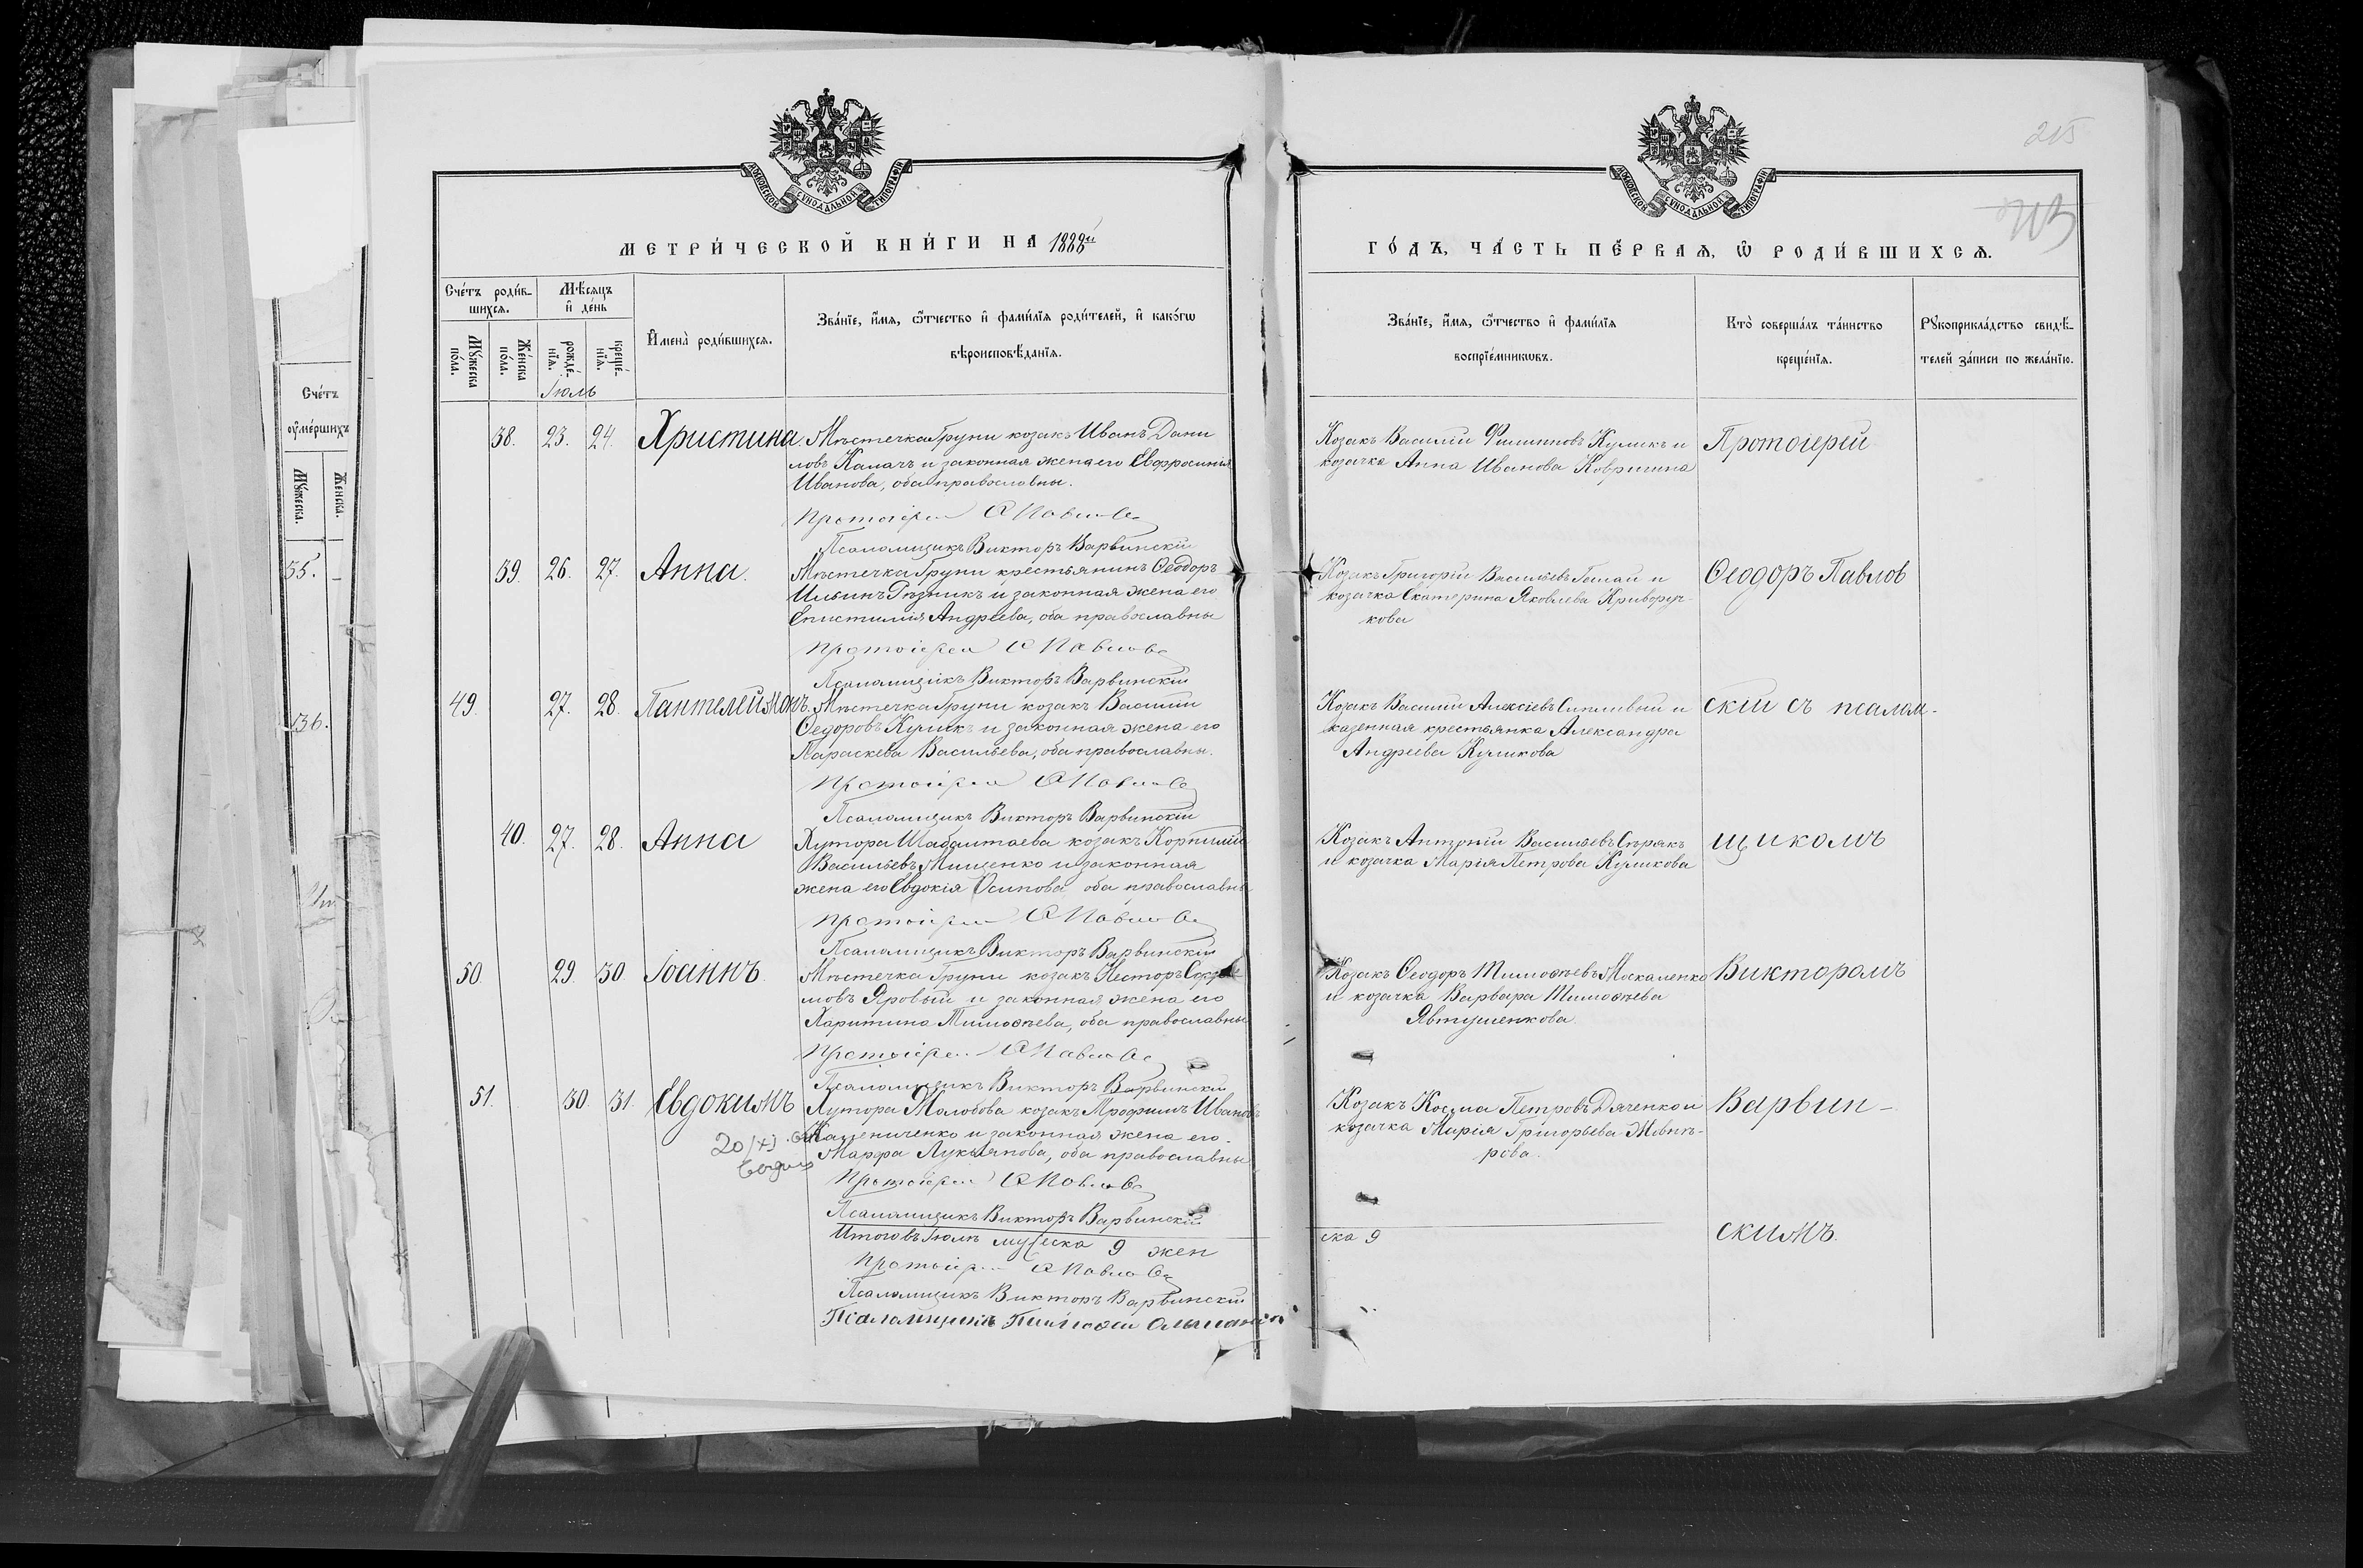 215
МОСКОВСКОЙ СУНОДАЛЬНОЙ ТИПОГРАФІИ
МОСКОВСКОЙ СУНОДАЛЬНОЙ ТИПОГРАФІИ
МЕТРИ́ЧЕСКОЙ КНИ́ГИ НА 1888й
ГО́ДЪ, ЧА́СТЬ ПЕ́РВАЯ, Ѡ РОДИ́ВШИХСЯ.
Сче́тъ роди́в-
шихся.
Мѣ́сяцъ
и҆ де́нь
Мꙋ́жеска
по́ла.
Же́нска
по́ла.
рожде́-
нїя.
креще́-
нїя.
И҆мена̀ роди́вшихся.
Зва́нїе, и҆́мя, ѻ҆́тчество и҆ фами́лїя роди́телей, и҆ како́гѡ
вѣроисповѣ́данїя.
Зва́нїе, и҆́мя, ѻ҆́тчество и҆ фами́лїя
воспрїе́мникѡвъ.
Кто̀ соверша́лъ та́инство
креще́нїя.
Рꙋкоприкла́дство свидѣ́-
телей за́писи по жела́нїю.
Іюль
38. 23. 24. Христина. Мѣстечка Груни козакъ Иванъ Дани
ловъ Калачъ и законная жена его Евфросинія
Иванова, оба православны.
Протоіерей Ѳ Павловс
Псаломщикъ Викторъ Варвинскій
Козакъ Василій Филипповъ Куликъ и
козачка Анна Иванова Ковригина
Протоіерей
39. 26. 27. Анна. Мѣстечка Груни крестьянинъ Ѳеодоръ
Ильинъ Рѣзникъ и законная жена его
Епистимія Андреева, оба православны
Протоіерей Ѳ Павловс
Псаломщикъ Викторъ Варвинскій
Козакъ Григорій Васильевъ и
козачка Екатерина Яковлева Криворуч-
кова
Ѳеодоръ Павлов
49. 27. 28. Пантелеймонъ. Мѣстечка Груни козакъ Василій
Ѳедоровъ Куликъ и законная жена его
Параскева Васильева, оба православны.
Протоіерей Ѳ Павловс
Псаломщикъ Викторъ Варвинскій
Козакъ Василій Алексіевъ Сипливый и
казенная крестьянка Александра
Андреева Куликова
скій съ псалом-
40. 27. 28. Анна Хутора козакъ Корнилій
Васильевъ Мищенко и законная
жена его Евдокія Осипова оба православны
Протоіерей Ѳ Павловс
Псаломщикъ Викторъ Варвинскій
Козакъ Антоній Васильевъ
и козачка Марія Петрова Куликова
щикомъ
50. 29. 30. Іоаннъ. Мѣстечка Груни козакъ Несторъ
мовъ Яровый и законная жена его
Харитина Тимоѳеева, оба православны
Протоіерей Ѳ Павловс
Псаломщикъ Викторъ Варвинскій
Козакъ Ѳеодоръ Тимоѳеевъ Москаленко
и козачка Варвара Тимоѳеева
Явтушенкова.
Викторомъ
51. 30. 31. Евдокимъ Хутора Жолобова козакъ Трофимъ Ивановъ
и законная жена его
Марфа Лукьянова, оба православны
Протоіерей Ѳ Павловс
Псаломщикъ Викторъ Варвинскій
Козакъ Косма Петровъ Дяченко и
козачка Марія Григорьева
рова.
Варвин-
Итого въ Іюлѣ мужеска 9 жен
ска 9
скимъ.
Протоіерей Ѳ Павловс
Псаломщикъ Викторъ Варвинскій
Псаломщикъ
Сче́тъ
ᲂу҆ме́ршихъ
Мꙋ́жеска.
Же́нска.
35. –
36.